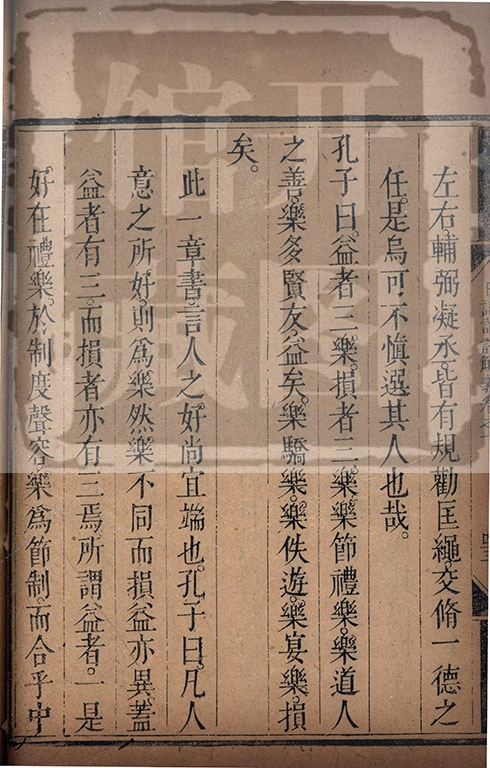 左右輔弼凝丞皆有規勸匡繩交脩一德之
任是烏可不慎選其人也哉
孔子曰益者三樂損者三樂樂節禮樂樂道人
之善樂多賢友益矣樂驕樂樂佚遊樂宴樂損
矣
此一章書言人之好尚宜端也孔子曰凡人
意之所好則爲樂然樂不同而損益亦異蓋
益者有三而損者亦有三焉所謂益者一是
好在禮樂於制度聲容樂爲節制而合乎中